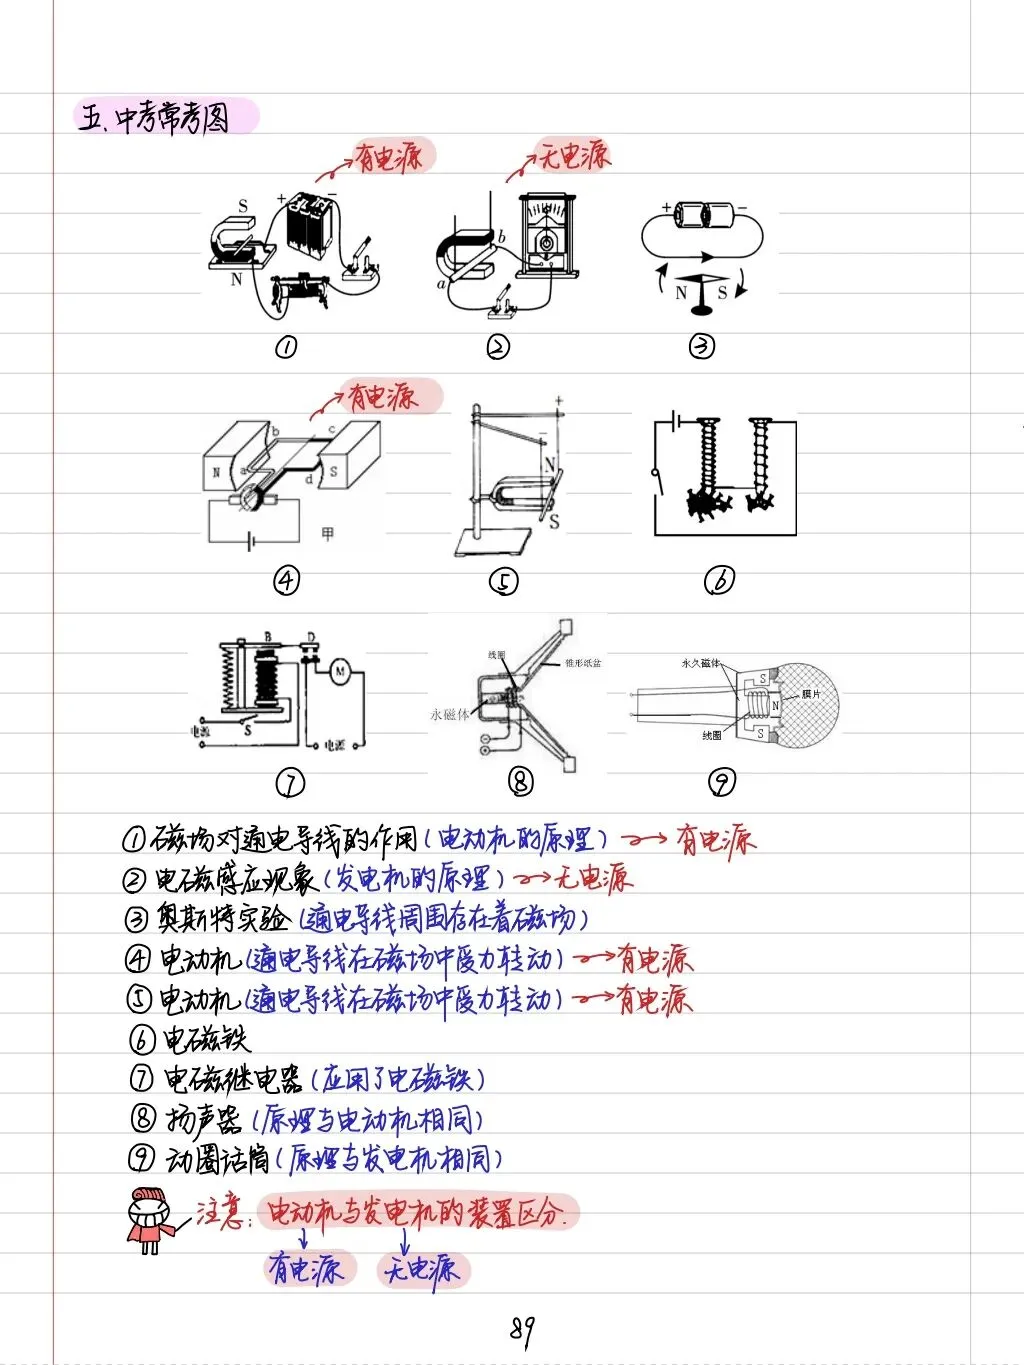 五、中考常考图
有电源
无电源
S
N
+
−
a
b
+ −
N S
①
②
③
有电源
N
S
a
b
c
d
甲
+
−
N
S
④
⑤
⑥
B D
M
S
电源
电源
线圈
锥形纸盆
永磁体
永久磁体
膜片
线圈
S
N
S
⑦
⑧
⑨
①磁场对通电导线的作用(电动机的原理)→有电源
②电磁感应现象(发电机的原理)→无电源
③奥斯特实验(通电导线周围存在着磁场)
④电动机(通电导线在磁场中受力转动)→有电源
⑤电动机(通电导线在磁场中受力转动)→有电源
⑥电磁铁
⑦电磁继电器(应用了电磁铁)
⑧扬声器(原理与电动机相同)
⑨动圈话筒(原理与发电机相同)
注意:电动机与发电机的装置区分.
有电源 无电源
89